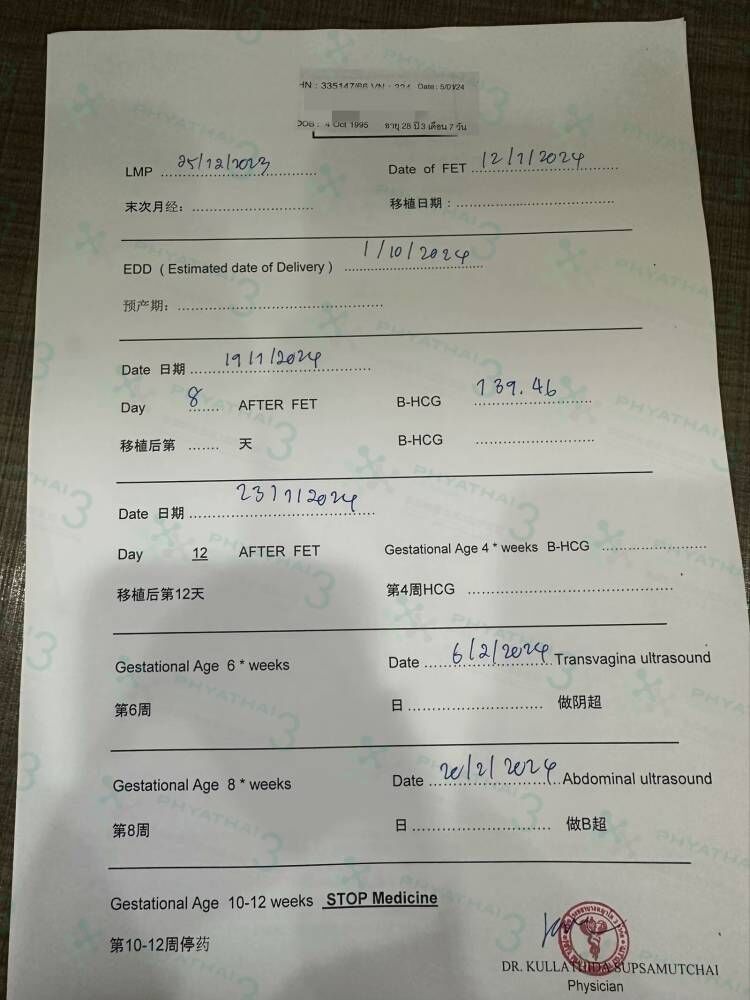 HN : 335147/66 VN : 224 Date : 5/01/24
DOB : 4 Oct 1995 อายุ 28 ปี 3 เดือน 7 วัน
LMP 25/12/2023 Date of FET 12/1/2024
末次月经: 移植日期 :
EDD ( Estimated date of Delivery ) 1/10/2024
预产期:
Date 日期 19/1/2024
Day 8 AFTER FET B-HCG 139.46
移植后第 天 B-HCG
Date 日期 23/1/2024
Day 12 AFTER FET Gestational Age 4 * weeks B-HCG
移植后第12天 第4周HCG
Gestational Age 6 * weeks Date 6/2/2024 Transvagina ultrasound
第6周 日 做阴超
Gestational Age 8 * weeks Date 20/2/2024 Abdominal ultrasound
第8周 日 做B超
Gestational Age 10-12 weeks STOP Medicine
第10-12周停药
DR. KULLATHIDA SUPSAMUTCHAI
Physician
PHYATHAI 3